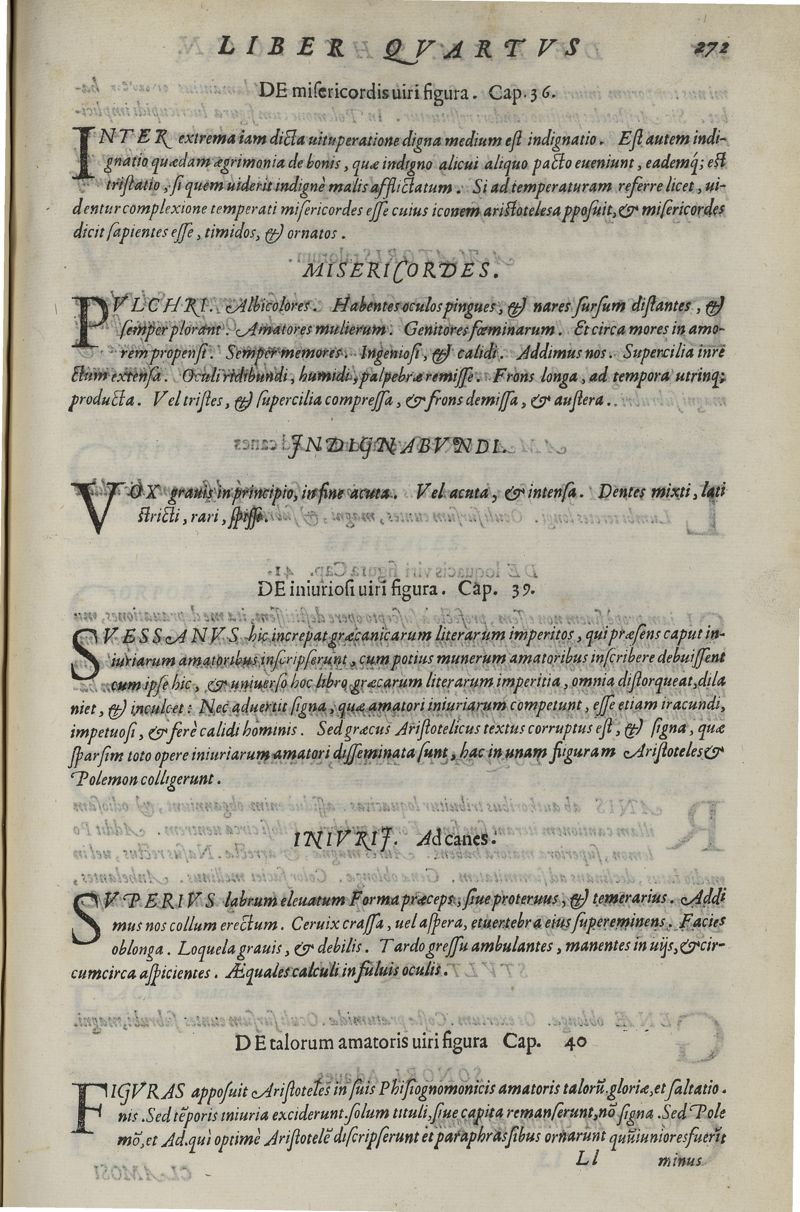 LIBER QVARTVS 272
DE misericordis uiri figura. Cap. 36.
INTER extrema iam dicta uituperatione digna medium est indignatio. Est autem indi-
gnatio quædam ægrimonia de bonis, quæ indigno alicui aliquo pacto eueniunt, eademq; est
tristatio, si quem uiderit indignè malis afflictatum. Si ad temperaturam referre licet, ui-
dentur complexione temperati misericordes esse cuius iconem aristoteles apposuit, & misericordes
dicit sapientes esse, timidos, & ornatos.
MISERICORDES.
PVLCHRI. Albicolores. Habentes oculos pingues, & nares sursum distantes, &
semper plorant. Amatores mulierum. Genitores fœminarum. Et circa mores in amo-
rem propensi. Semper memores. Ingeniosi, & calidi. Addimus nos. Supercilia in re
ctum extensa. Oculi ridibundi, humidi, palpebræ remisse. Frons longa, ad tempora utrinq;
producta. Vel tristes, & supercilia compressa, & frons demissa, & austera.
INDIGNABVNDI.
VOX grauis in principio, in fine acuta. Vel acuta, & intensa. Dentes mixti, lati
stricti, rari, spisse.
DE iniuriosi uiri figura. Cap. 39.
SVESSANVS hic increpat græcanicarum literarum imperitos, qui præsens caput in-
iuriarum amatoribus inscripserunt, cum potius munerum amatoribus inscribere debuissent
cum ipse hic, & uniuerso hoc libro græcarum literarum imperitia, omnia distorqueat, dila
niet, & inculcet: Nec aduertit signa, quæ amatori iniuriarum competunt, esse etiam iracundi,
impetuosi, & ferè calidi hominis. Sed græcus Aristotelicus textus corruptus est, & signa, quæ
sparsim toto opere iniuriarum amatori disseminata sunt, hac in unam figuram Aristoteles &
Polemon colligerunt.
INIVRII. Ad canes.
SVPERIVS labrum eleuatum Forma præceps, siue proteruus, & temerarius. Addi
mus nos collum erectum. Ceruix crassa, uel aspera, et uertebra eius supereminens. Facies
oblonga. Loquela grauis, & debilis. Tardo gressu ambulantes, manentes in uijs, & cir-
cumcirca aspicientes. Æquales calculi in fuluis oculis.
DE talorum amatoris uiri figura Cap. 40
FIGVRAS apposuit Aristoteles in suis Phisiognomonicis amatoris talorũ, gloriæ, et saltatio.
nis. Sed tẽporis iniuria exciderunt. solum tituli, siue capita remanserunt, nõ signa. Sed Pole
mõ, et Ad. qui optimè Aristotelẽ discripserunt et paraphrassibus ornarunt quũ iuniores fuerĩt
Ll minus